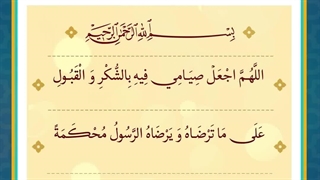 بِسْمِ اللهِ الرَّحْمٰنِ الرَّحِيْمِ
اللَّهُمَّ اجْعَلْ صِيَامِي فِيهِ بِالشُّكْرِ وَ الْقَبُولِ
عَلَى مَا تَرْضَاهُ وَ يَرْضَاهُ الرَّسُولُ مُحْكَمَةً